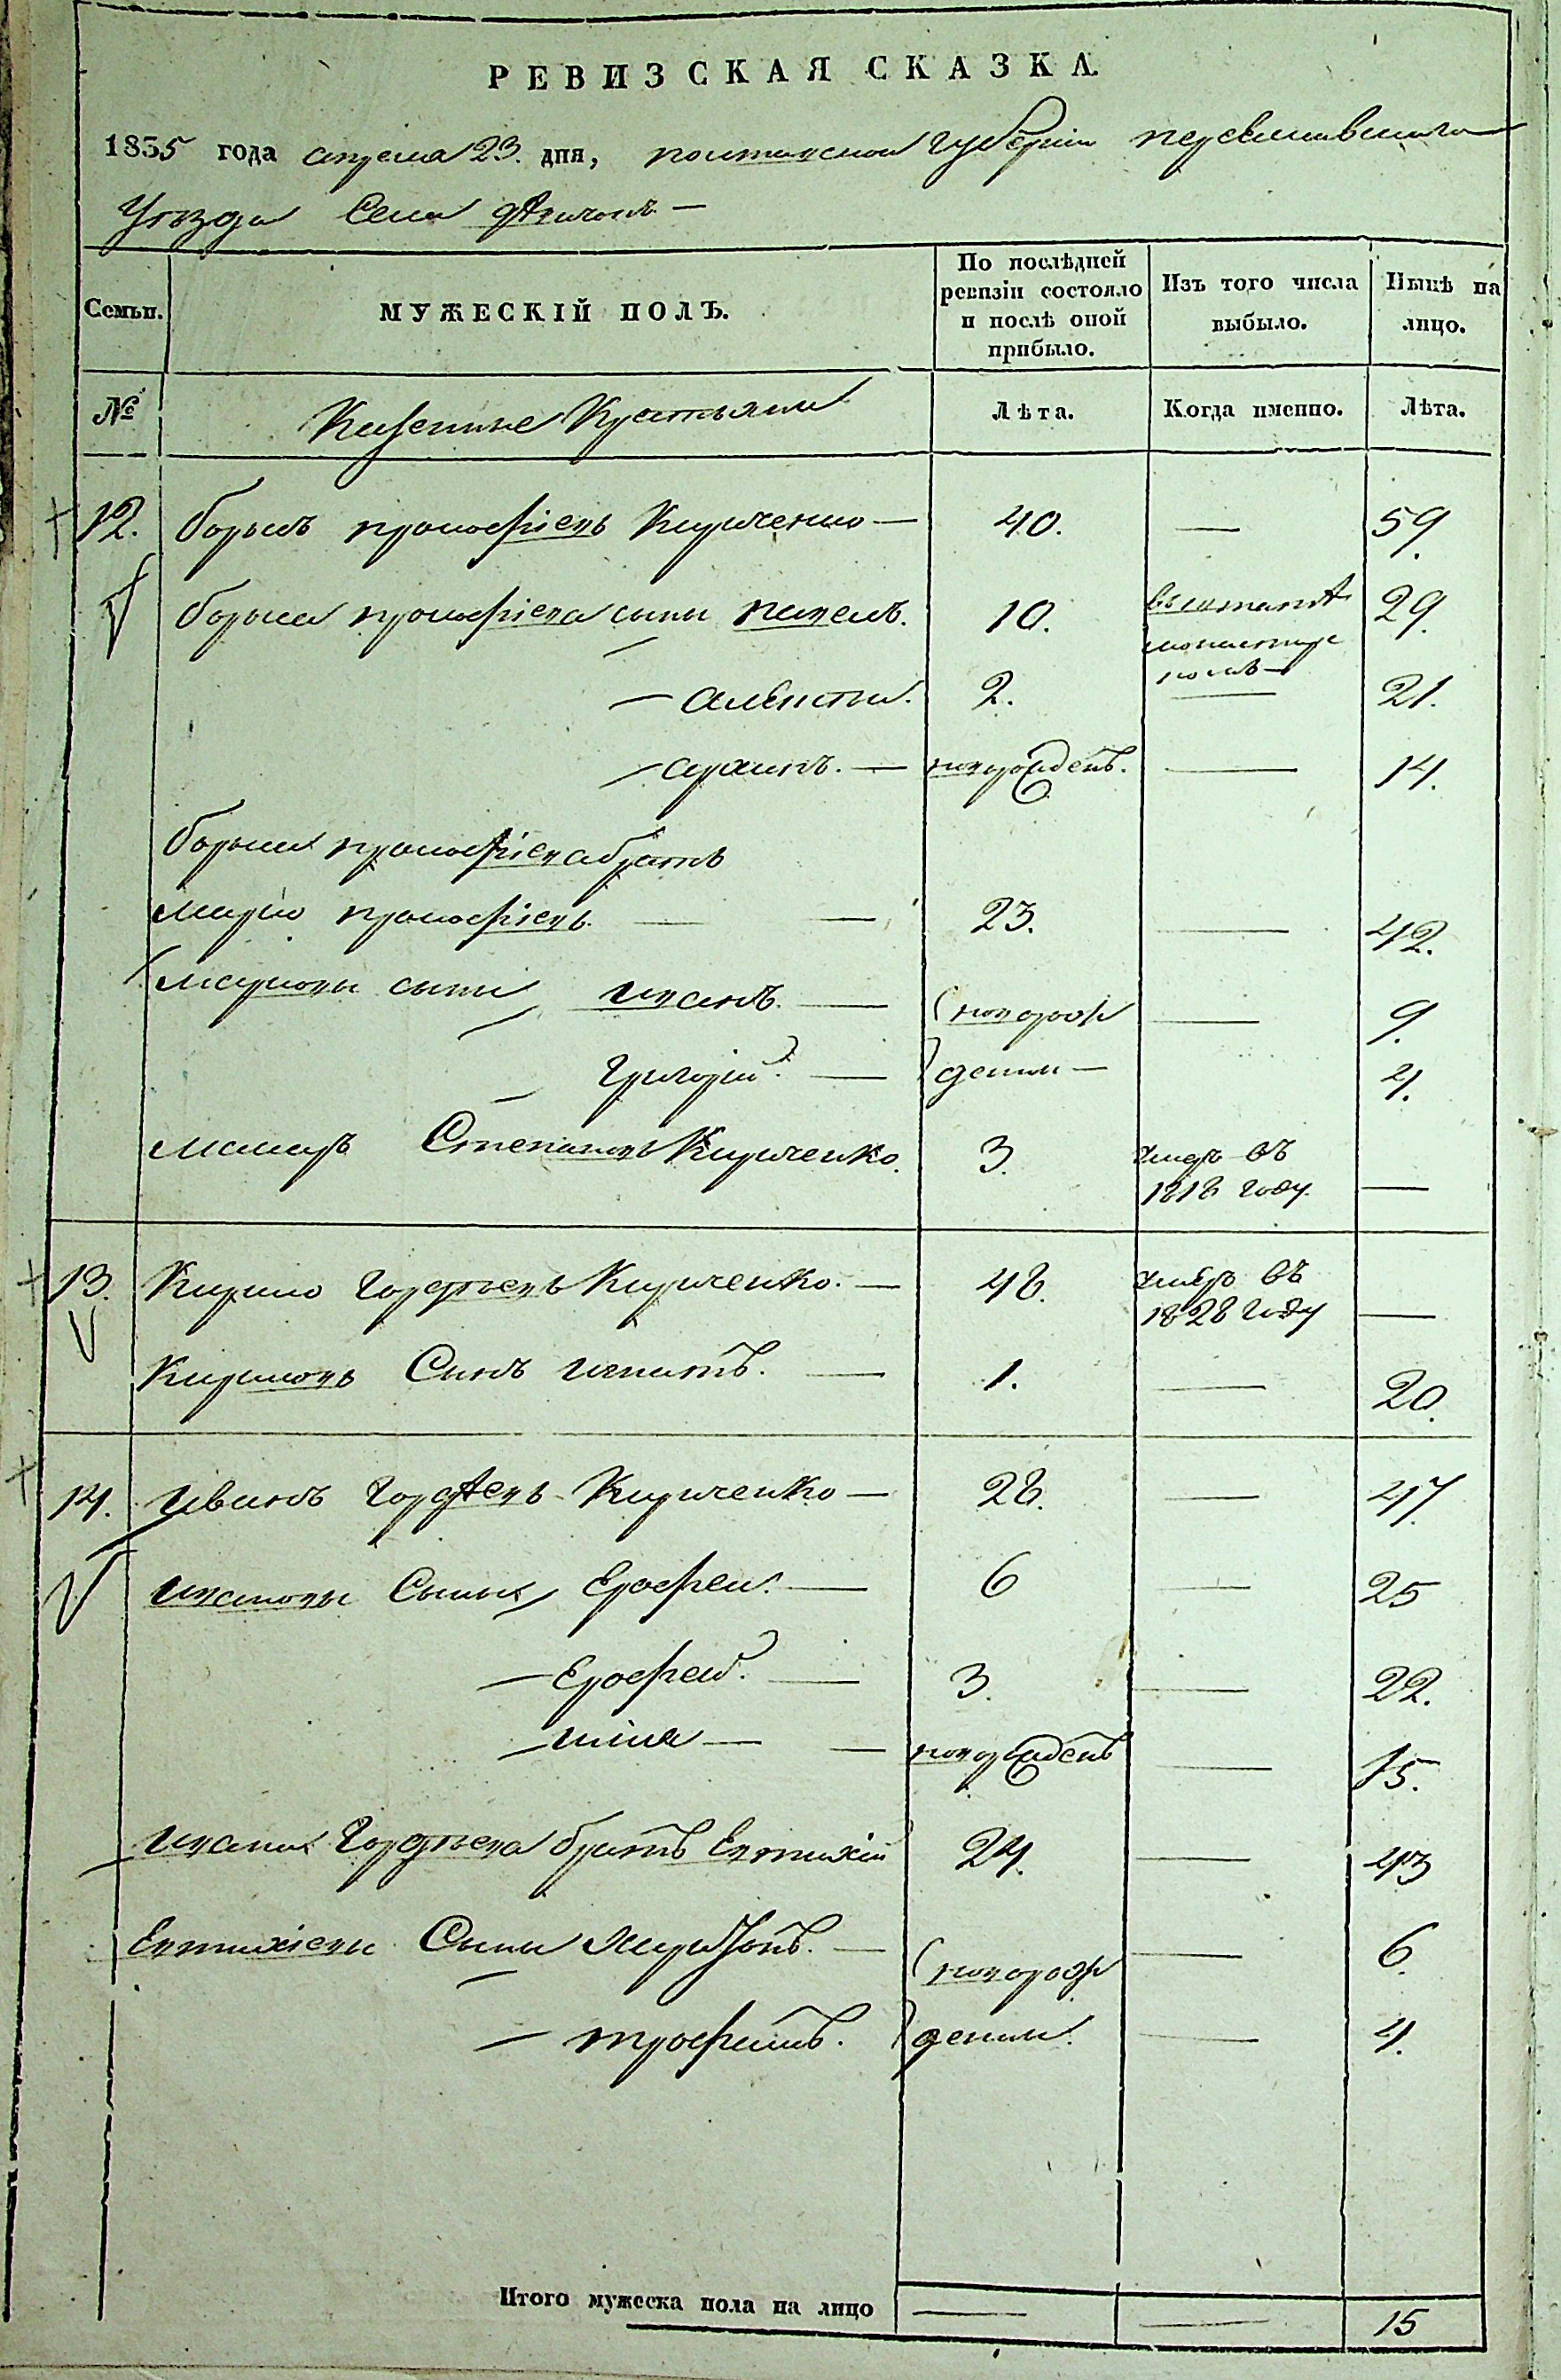 РЕВИЗСКАЯ СКАЗКА.
1835 года апреля 23. дня, полтавской губернии переяславского
уезда Села дѣвичокъ —
Семьи. МУЖЕСКІЙ ПОЛЪ. По послѣдней ревизіи состояло и послѣ оной прибыло. Изъ того числа выбыло. Нынѣ на лицо.
№ Казенние Крестьяни Лѣта. Когда именно. Лѣта.
12. борысъ прокофіевъ Кириченко — 40. — 59.
бориса прокофіева сыны павелъ. 10. 29.
— алексѣи. 2. — 21.
новорожденъ. — 14.
бориса прокофіева братъ
марко прокофіевъ. — — 23. — 42.
марковы сыны иванъ. — новорож — 9.
григорій. — дении — 4.
Степановъ Кириченко. 3. умеръ въ 1818 году. —
13. Кирило Гордѣевъ Кириченко. — 48. умеръ въ 1828 году —
Кириловъ Сынъ игнатъ. — 1. — 20.
14. Иванъ Гордѣевъ Кириченко — 28. — 47.
ивановы Сыны Ерофеи. — 6 — 25
— Ерофей. — 3. — 22.
— илия — — новорожденъ — 15.
ивана Гордѣева братъ Евтихій 24. — 43
Евтихіевы Сыны Харитонъ. — новорож — 6.
— трофимъ. дении. — 4.
Итого мужеска пола на лицо — — 15